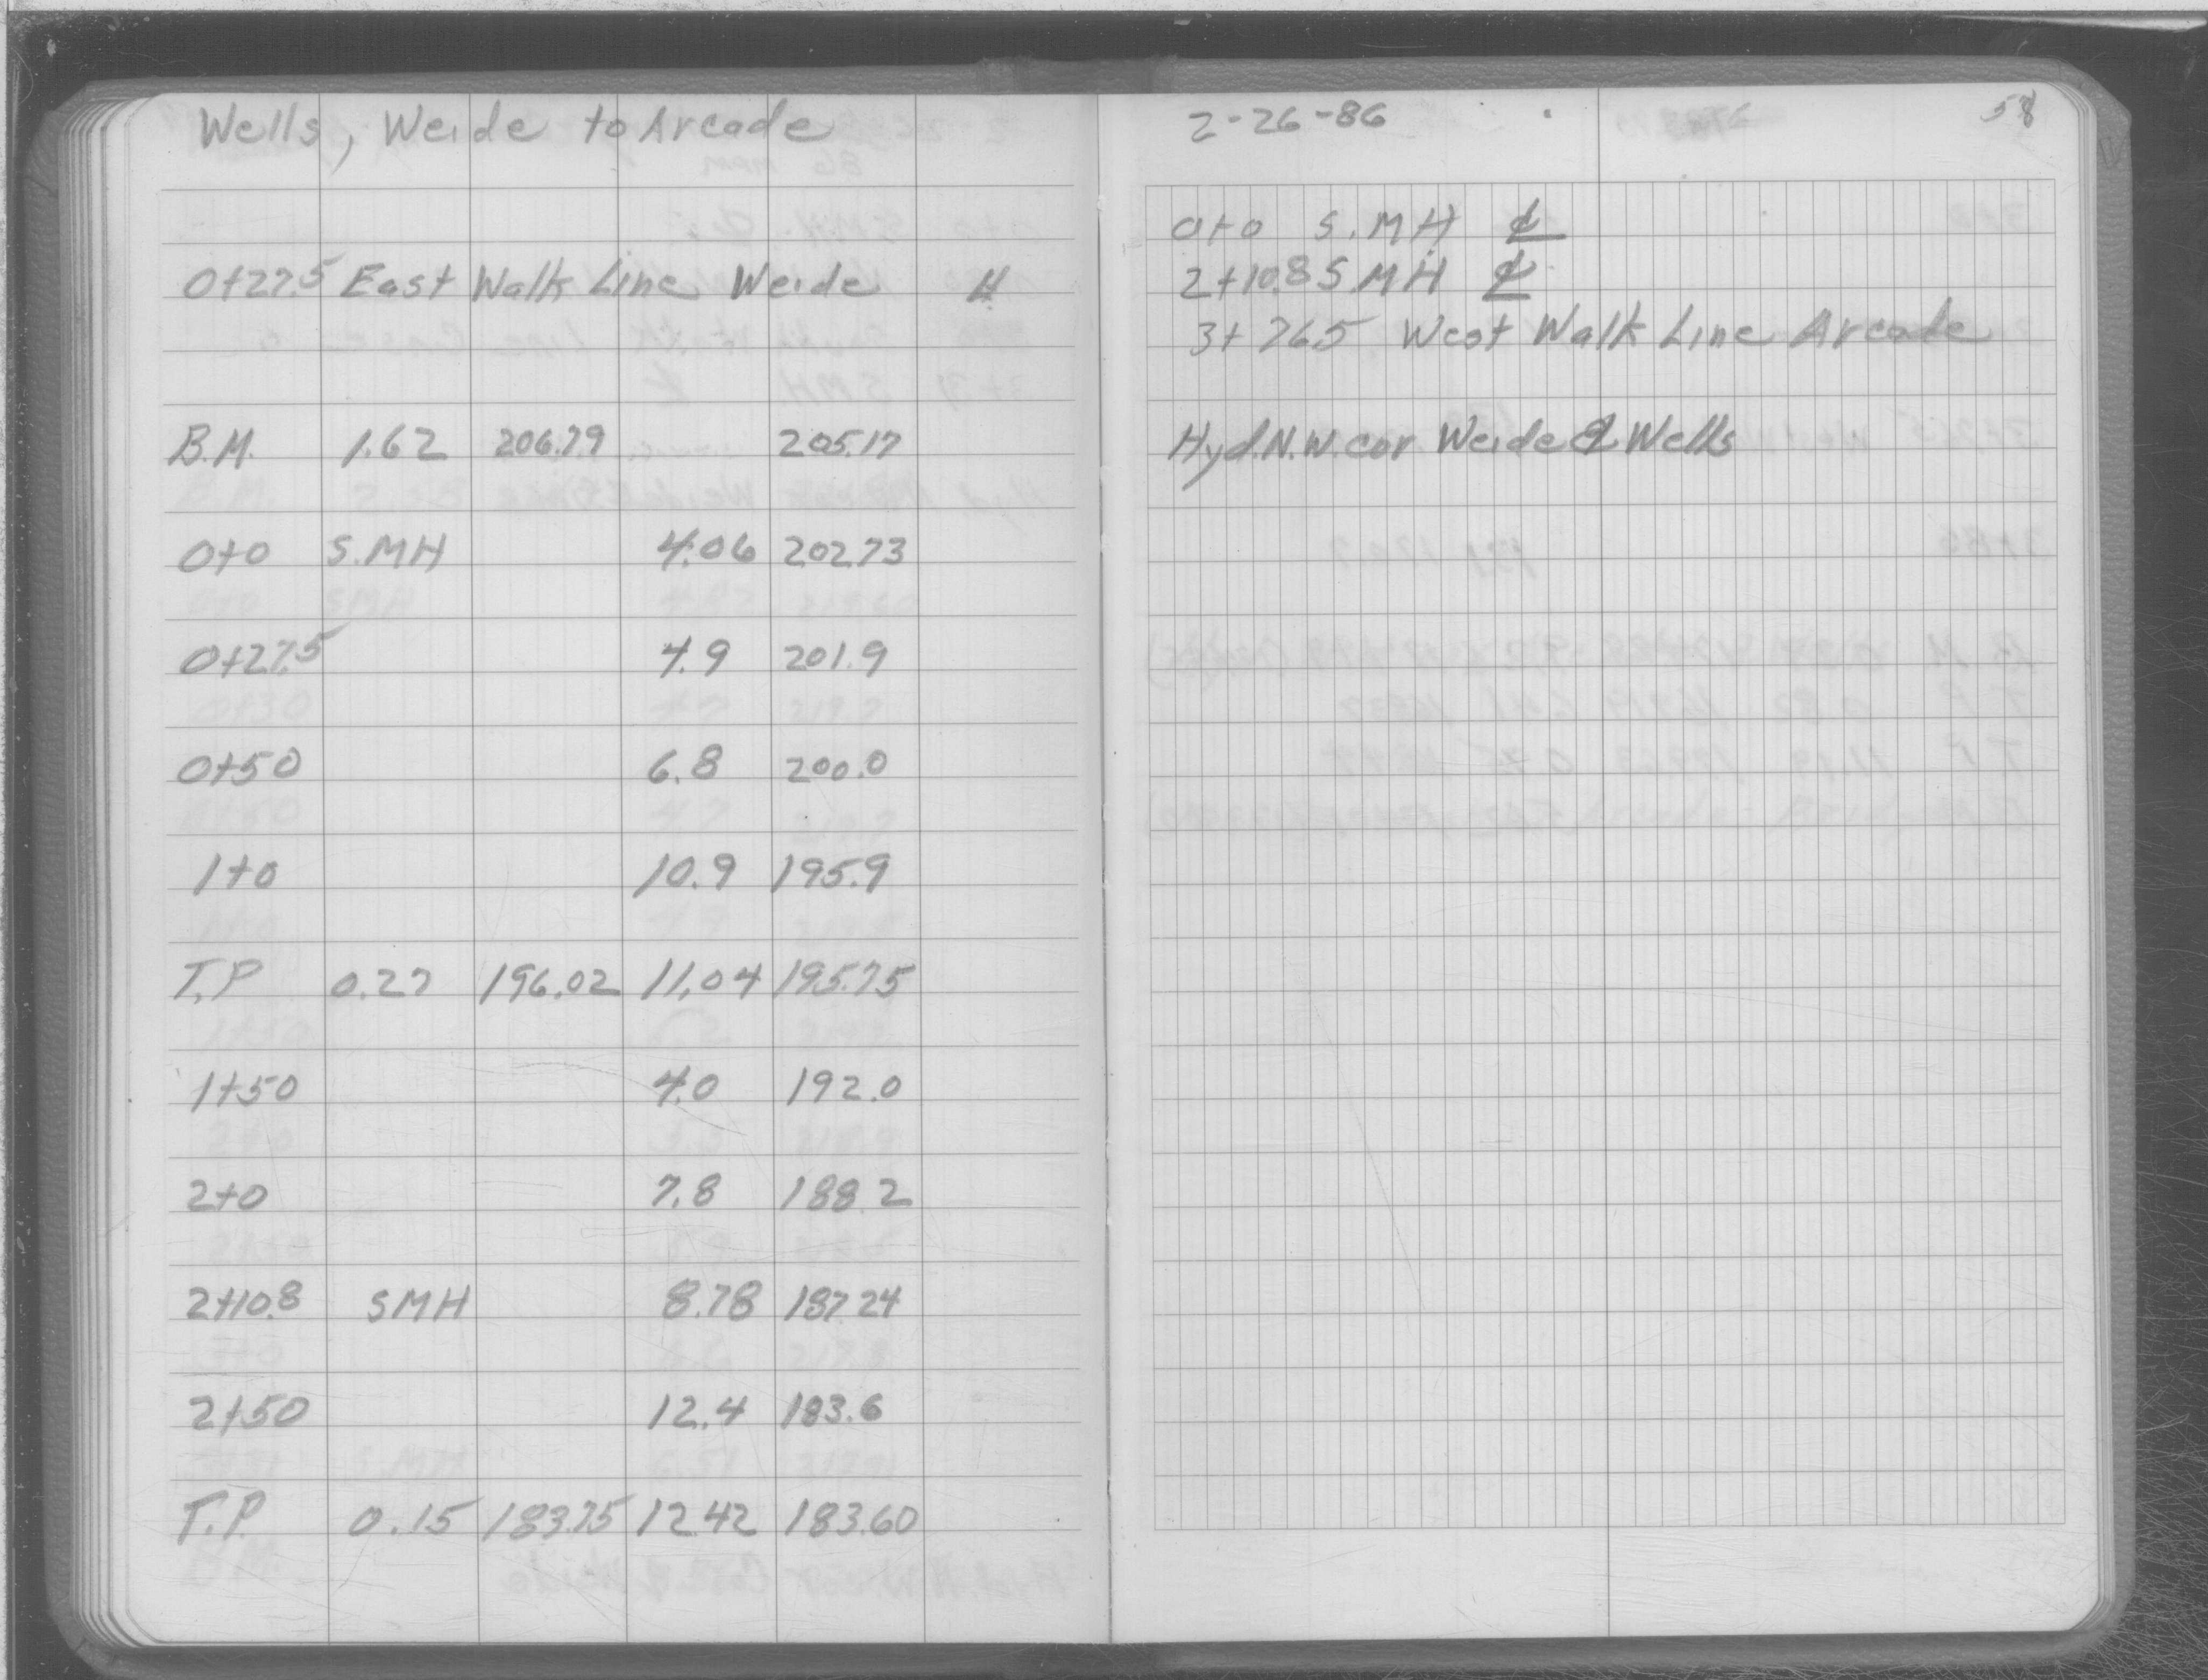 Wells, Weide to Arcade
0+27.5 East Walk Line Weide
B.M. 1.62 206.79 205.17
0+0 S.MH 4.06 202.73
0+27.5 4.9 201.9
0+50 6.8 200.0
1+0 10.9 195.9
T.P 0.27 196.02 11.04 195.75
1+50 4.0 192.0
2+0 7.8 188.2
2+10.8 SMH 8.78 187.24
2+50 12.4 183.6
T.P. 0.15 183.75 12.42 183.60
2-26-86 58
0+0 S.MH ℄
2+10.8 S.MH ℄
3+76.5 West Walk Line Arcade
Hyd. N.W. cor Weide & Wells